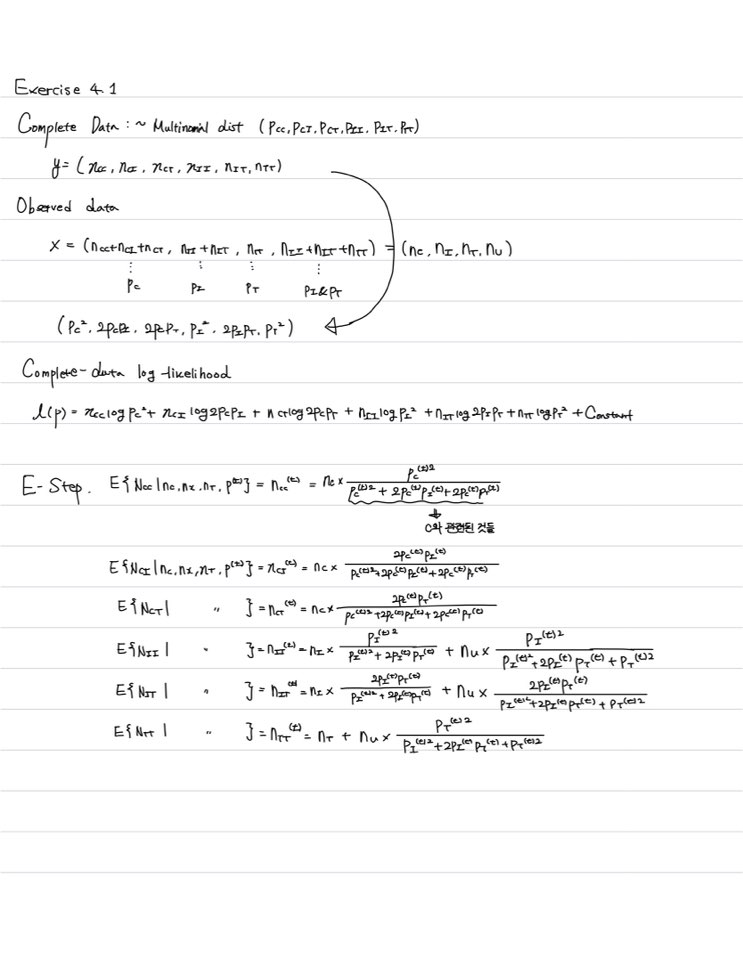 Exercise 4.1
Complete Data : ~ Multinomial dist (P_CC, P_CI, P_CT, P_II, P_IT, P_TT)
y = (n_CC, n_CI, n_CT, n_II, n_IT, n_TT)
Observed data
X = (n_CC+n_CI+n_CT, n_II+n_IT, n_TT, n_II+n_IT+n_TT) = (n_C, n_I, n_T, n_U)
⋮ ⋮ ⋮ ⋮
P_C P_I P_T P_I&P_T
(P_C², 2P_CP_I, 2P_CP_T, P_I², 2P_IP_T, P_T²)
Complete-data log-likelihood
l(p) = n_CC log P_C² + n_CI log 2P_CP_I + n_CT log 2P_CP_T + n_II log P_I² + n_IT log 2P_IP_T + n_TT log P_T² + Constant
E-Step. E{N_CC | n_C, n_I, n_T, p^(t)} = n_CC^(t) = n_C × P_C^(t)2 / (P_C^(t)2 + 2P_C^(t)P_I^(t) + 2P_C^(t)P_T^(t))
C와 관련된 것들
E{N_CI | n_C, n_I, n_T, p^(t)} = n_CI^(t) = n_C × 2P_C^(t)P_I^(t) / (P_C^(t)2 + 2P_C^(t)P_I^(t) + 2P_C^(t)P_T^(t))
E{N_CT | 〃 } = n_CT^(t) = n_C × 2P_C^(t)P_T^(t) / (P_C^(t)2 + 2P_C^(t)P_I^(t) + 2P_C^(t)P_T^(t))
E{N_II | 〃 } = n_II^(t) = n_I × P_I^(t)2 / (P_I^(t)2 + 2P_I^(t)P_T^(t)) + n_U × P_I^(t)2 / (P_I^(t)2 + 2P_I^(t)P_T^(t) + P_T^(t)2)
E{N_IT | 〃 } = n_IT^(t) = n_I × 2P_I^(t)P_T^(t) / (P_I^(t)2 + 2P_I^(t)P_T^(t)) + n_U × 2P_I^(t)P_T^(t) / (P_I^(t)2 + 2P_I^(t)P_T^(t) + P_T^(t)2)
E{N_TT | 〃 } = n_TT^(t) = n_T + n_U × P_T^(t)2 / (P_I^(t)2 + 2P_I^(t)P_T^(t) + P_T^(t)2)